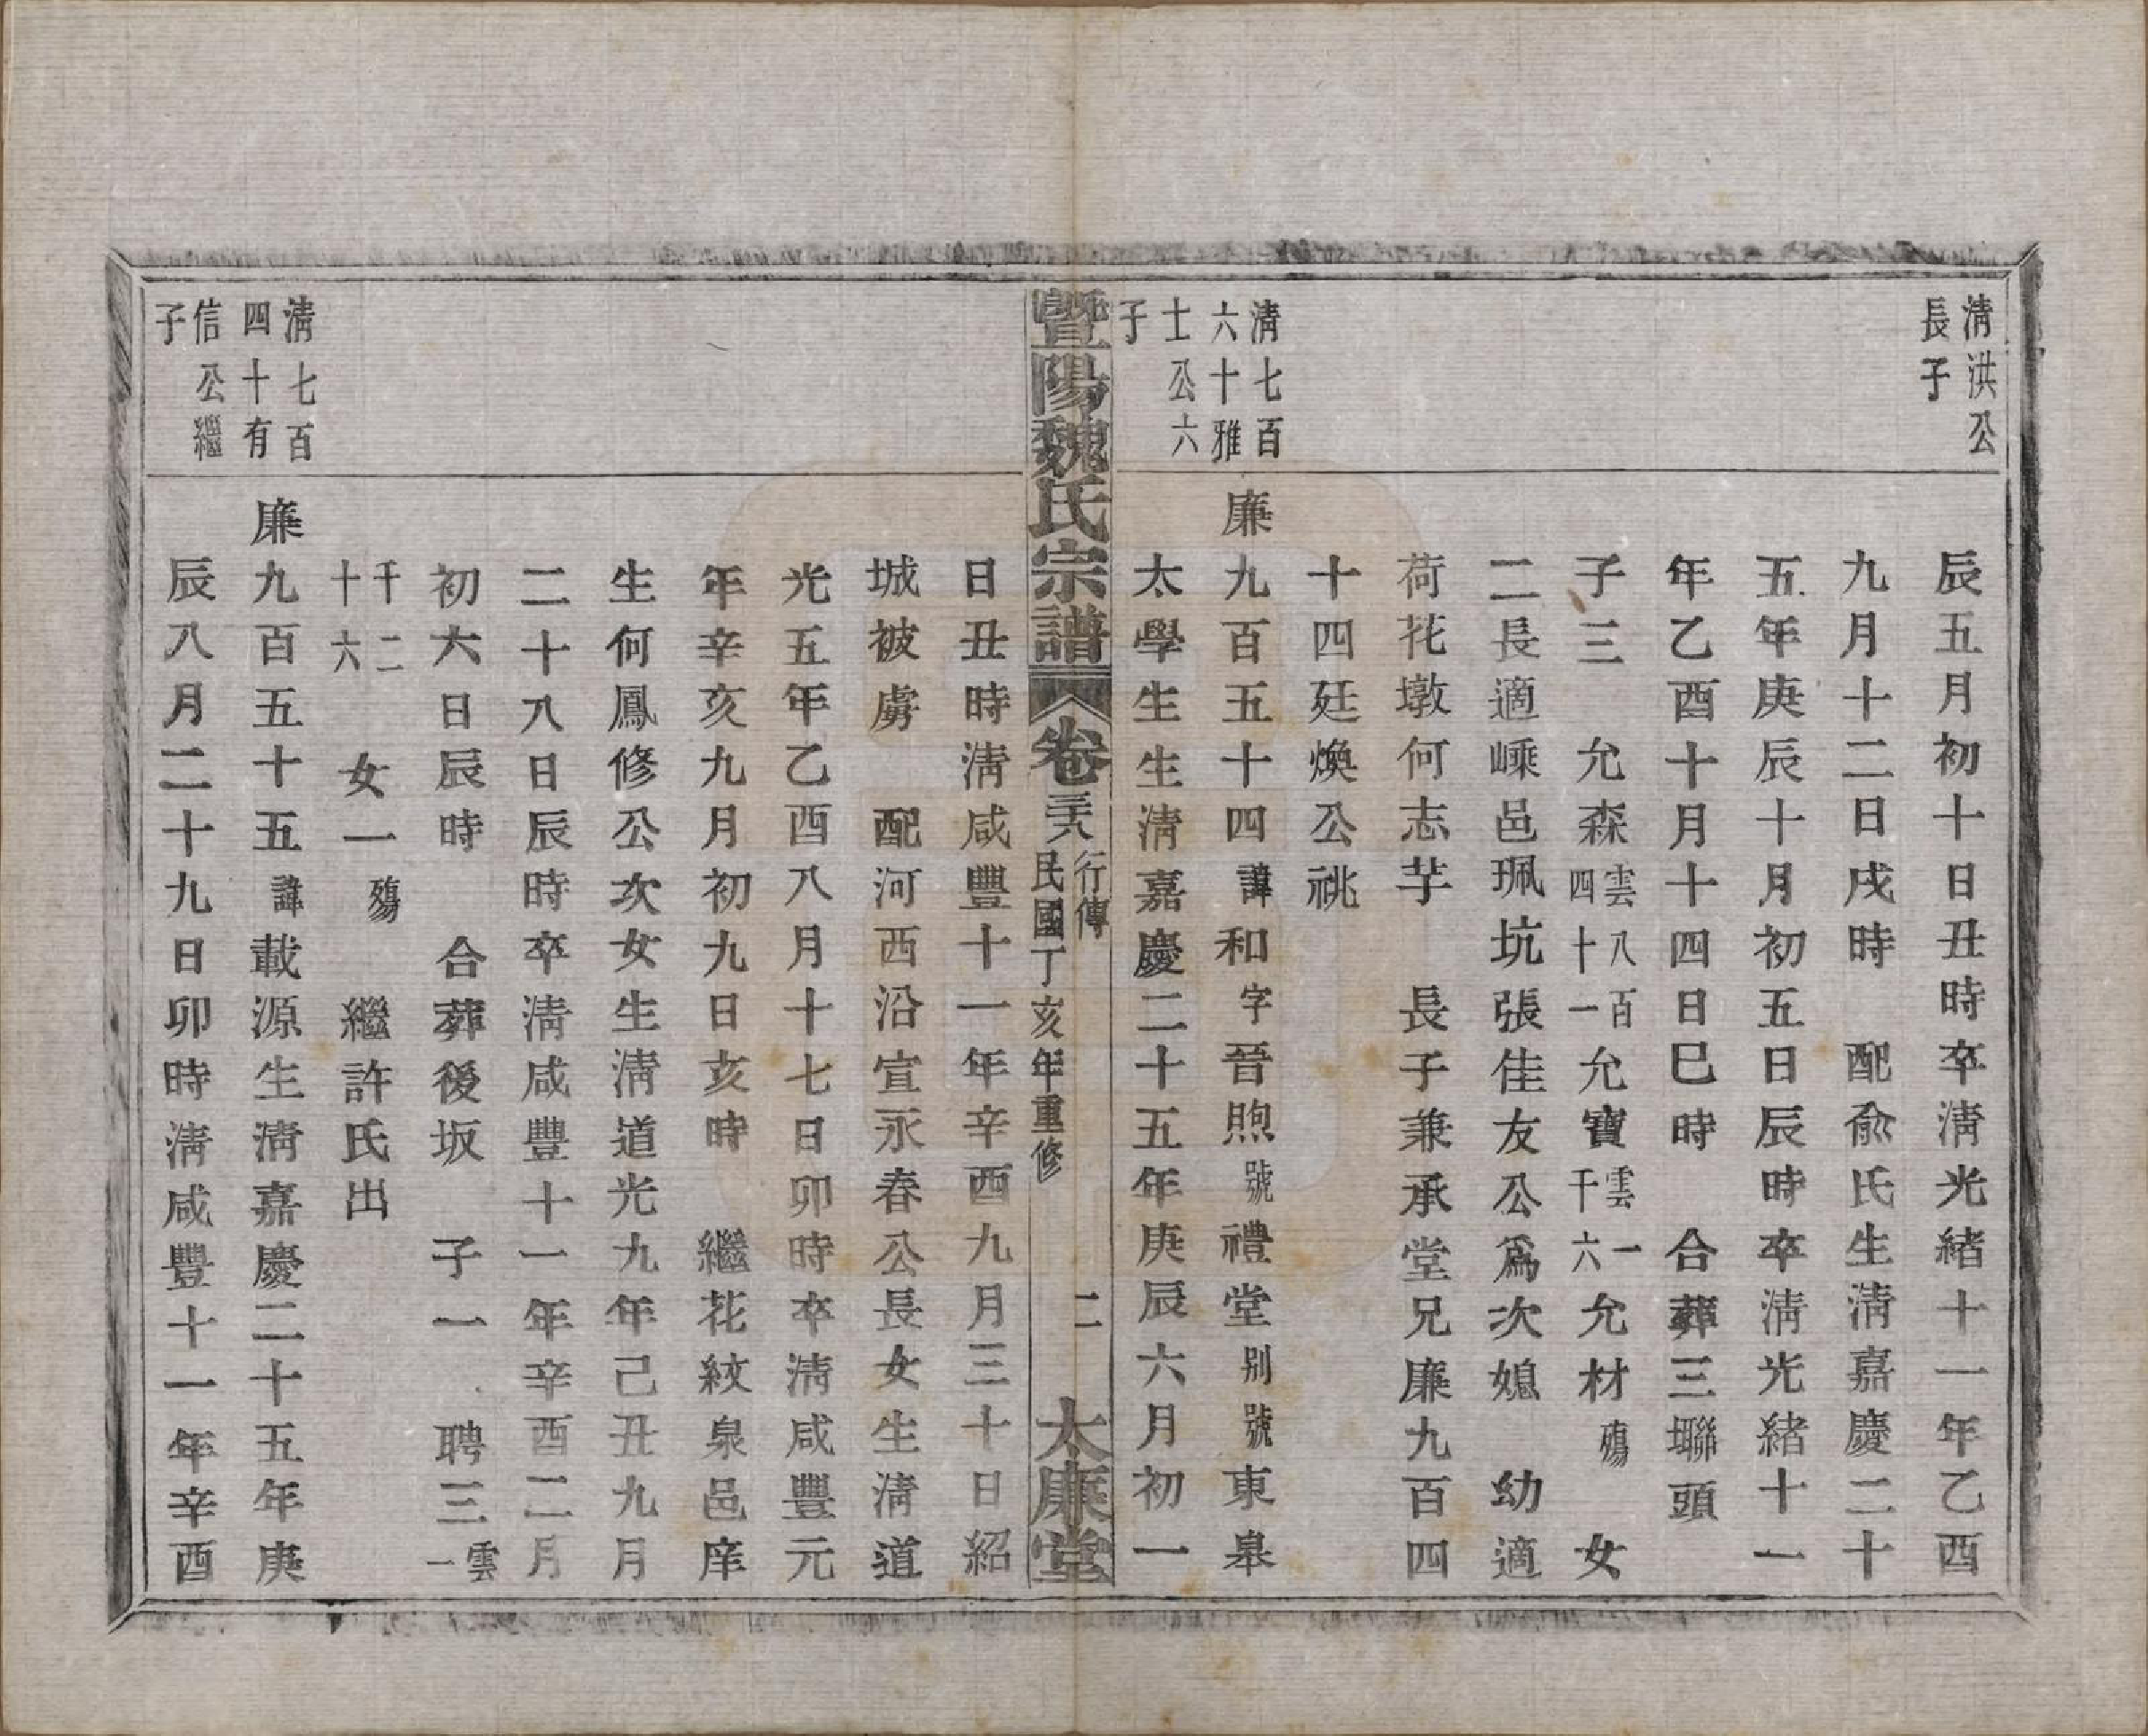 清洪公
長子
辰五月初十日丑時卒淸光緒十一年乙酉
九月十二日戌時　配兪氏生淸嘉慶二十
五年庚辰十月初五日辰時卒淸光緒十一
年乙酉十月十四日巳時　合葬三塀頭
子三　允森雲八百四十一允寶雲一千六允材殤　女
二長適嵊邑珮坑張佳友公爲次媳　幼適
荷花墩何志芋　長子兼承堂兄廉九百四
十四廷煥公祧
清七百
六十雅
士公六
子
廉九百五十四諱和字晉煦號禮堂别號東皋
太學生生淸嘉慶二十五年庚辰六月初一
暨陽魏氏宗譜
卷三十八
行傳
民國丁亥年重修
二
大廉堂
日丑時淸咸豐十一年辛酉九月三十日紹
城被虜　配河西沿宣永春公長女生淸道
光五年乙酉八月十七日卯時卒淸咸豐元
年辛亥九月初九日亥時　繼花紋泉邑庠
生何鳳修公次女生淸道光九年己丑九月
二十八日辰時卒淸咸豐十一年辛酉二月
初六日辰時　合葬後坂　子一　聘三雲一
千二十六　女一殤　繼許氏出
清七百
四十有
信公繼
子
廉九百五十五諱載源生淸嘉慶二十五年庚
辰八月二十九日卯時淸咸豐十一年辛酉